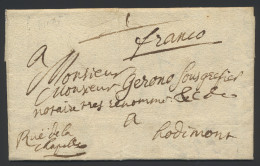 franco
A
Monsieur
Monsieur Gerono Sousgreffier
notaire tres renommé &c &c
a
Rodimont
Rue de la
Chapelle